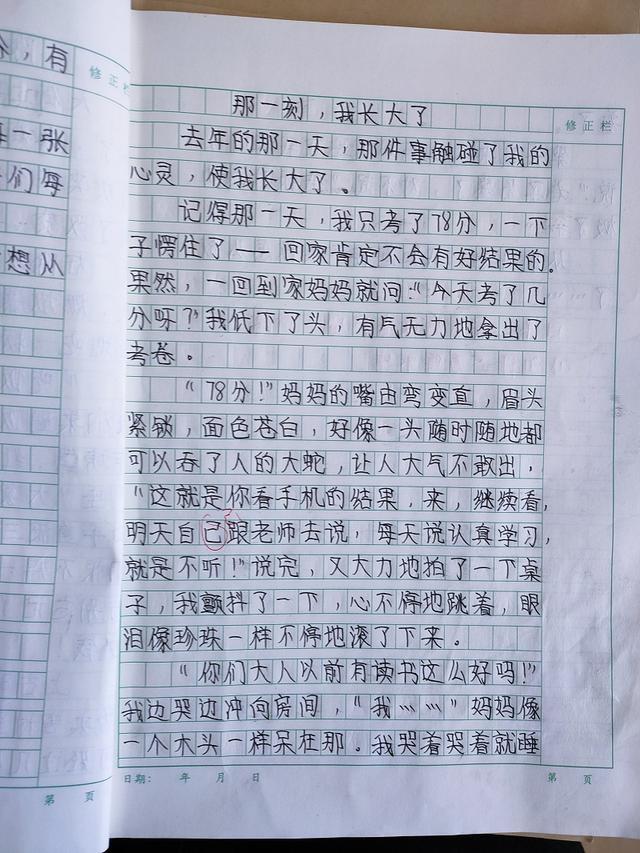 分，有
修正栏
一张
们每
想从
第 页
那一刻，我长大了
修正栏
去年的那一天，那件事触碰了我的
心灵，使我长大了。
记得那一天，我只考了78分，一下
子愣住了——回家肯定不会有好结果的。
果然，一回到家妈妈就问："今天考了几
分呀？"我低下了头，有气无力地拿出了
考卷。
"78分！"妈妈的嘴由弯变直，眉头
紧锁，面色苍白，好像一头随时随地都
可以吞了人的大蛇，让人大气不敢出，
"这就是你看手机的结果，来，继续看，
明天自己跟老师去说，每天说认真学习，
就是不听！"说完，又大力地拍了一下桌
子，我颤抖了一下，心不停地跳着，眼
泪像珍珠一样不停地滚了下来。
"你们大人以前有读书这么好吗！"
我边哭边冲向房间，"我……"妈妈像
一个木头一样呆在那。我哭着哭着就睡
日期： 年 月 日
第 页